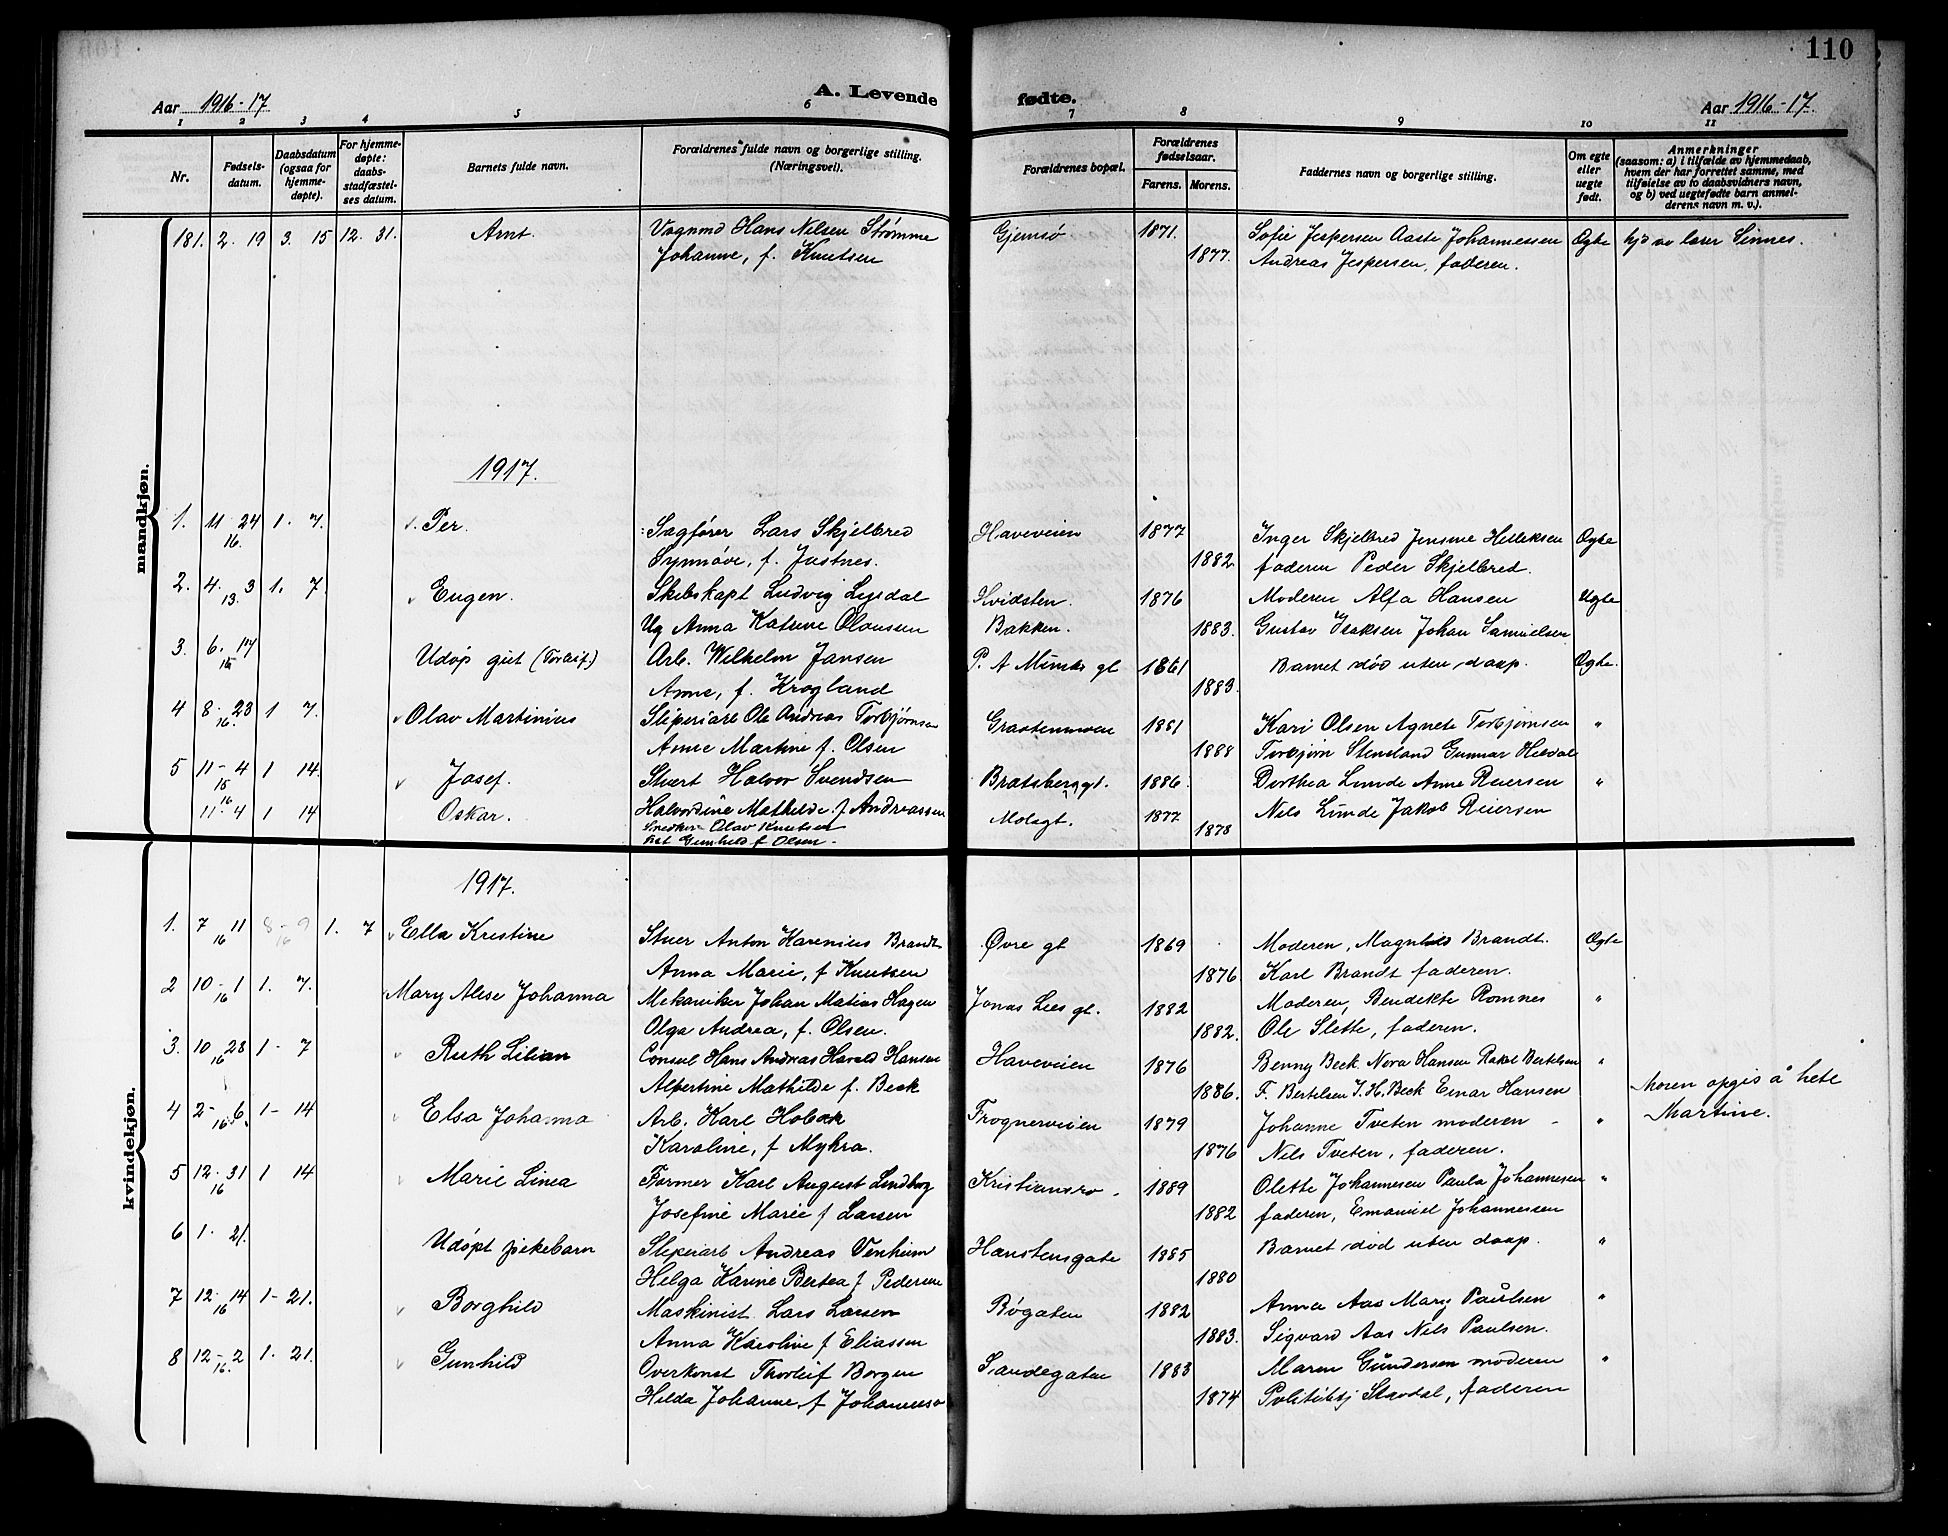 110
Aar 1916-17
A. Levende fødte.
Aar 1916-17.
1 2 3 4 5 6 7 8 9 10 11
Nr.
Fødsels-
datum.
Daabsdatum
(ogsaa for
hjemme-
døpte).
For hjemme-
døpte:
daabs-
stadfæstel-
ses datum.
Barnets fulde navn.
Forældrenes fulde navn og borgerlige stilling.
(Næringsvei).
Forældrenes bopæl.
Forældrenes
fødselsaar.
Farens. Morens.
Faddernes navn og borgerlige stilling.
Om egte
eller
uegte
født.
Anmerkninger
(saasom: a) i tilfælde av hjemmedaab,
hvem der har forrettet samme, med
tilføielse av to daabsvidners navn,
og b) ved uegtefødte barn anmel-
derens navn m. v.).
mandkjøn.
181. 2. 19 3. 15 12. 31. Arnt. Vognmd Hans Nilsen Strømme Gjemsø 1871. Sofie Jespersen Aaste Johannessen Egte hjd av lærer Sinnes.
Johanne, f. Knutsen 1877. Andreas Jespersen, faderen.
1917.
1. 11-24 16. 1. 7. Per. Sagfører Lars Skjelbred Haveveien 1877 Inger Skjelbred Jensine Helleksen Egte
Synnøve, f. Justnes. 1882. faderen Peder Skjelbred.
2. 4. 3 13. 1. 7. Eugen. Skibskapt Ludvig Lysdal Hvidsten. 1876 Moderen Alfa Hansen Uegte
Ug Anna Katrine Olaussen Bakken. 1883. Gustav Isaksen Johan Samuelsen
3. 6. 17 15 Udøp gut (Torleif.) Arb. Wilhelm Jansen P. A Munks gt 1861 Barnet død uten daap. Egte.
Anne, f. Krogland 1883.
4 8-23 16. 1 7. Olav Martinius Sliperiarb Ole Andreas Torbjørnsen Graatenmoen 1881 Kari Olsen Agnete Torbjørnsen "
Anne Martine f. Olsen 1888 Torbjørn Stensland Gunnar Heldal
5 11-4 16 1 14. Josef. Stuert Halvor Svendsen Bratsberggt. 1886. Dorthea Lunde Anne Reiersen "
Halvordine Mathilde f Andreassen Nils Lunde Jakob Reiersen
16 11-4 1 14 Oskar. Snedker Olav Knutsen Molegt. 1877 1878
Gunhild f Olsen-
kvindekjøn.
1917.
1. 7 11 16 8-9 16 1. 7 Ella Kristine Stuer Anton Karenius Brandt Øvre gt 1869 Moderen, Magnhild Brandt. Egte
Anna Marie, f Knutsen 1876 Karl Brandt faderen.
2 10-1 16 1. 7. Mary Alise Johanna Mekaniker Johan Matias Hagen Jonas Lies gt. 1882 Moderen, Bendikte Romnes "
Olga Andrea, f. Olsen. 1882. Ole Slette, faderen.
3. 10 28 16 1- 7 Ruth Lilian Consul Hans Andreas Harald Hansen Haveveien 1876 Benny Beck Nora Hansen Rakel Bertelsen "
Alpertine Mathilde f. Beck 1886. F. Bertelsen J. H. Beck Einar Hansen
4 2-6 16. 1- 14 Elsa Johanna Arb. Karl Hobæk Frognerveien 1879 Johanne Tveten moderen - " Moren opgis å hete
Karoline, f Myhra. 1876 Nils Tveten, faderen. Martine.
5 12. 31 16 1 14 Marie Linea Former Karl August Lindborg Kristiansro - 1889 Olette Johannesen Paula Johannesen "
Josefine Marie f Larsen 1882 faderen, Emanuel Johannessen
6 1. 21. Udøpt pikebarn Sliperiarb Andreas Venheim Hanstensgate 1885 Barnet død uten daap. "
Helga Karine Bertea f Pedersen 1880
7 12-14 16 1- 21. Borghild Maskinist Lars Larsen Bøgaten 1882 Anna Aas Mary Paulsen "
Anna Karoline f Eliassen 1883. Sigvard Aas Nils Paulsen.
8 12-2 16. 1. 21. Gunhild Overkonst Thorleif Borgen Sandegaten 1883 Maren Gundersen moderen "
Hilda Johanne, f Johannessen 1874 Politibtj Stavdal, faderen